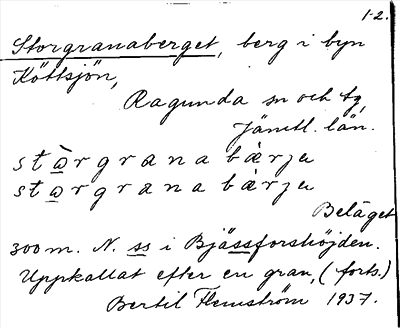 1-2.
Storgranaberget, berg i byn
Köttsjön,
Ragunda sn och tg,
Jämtl. län.
stɷ̀rgrana bæ̀rjeɩ
stɷrgrana bæ̀rjeɩ
Beläget
300 m. N. ss i Bjässforshöjden.
Uppkallat efter en gran, (forts.)
Bertil Flemström 1937.